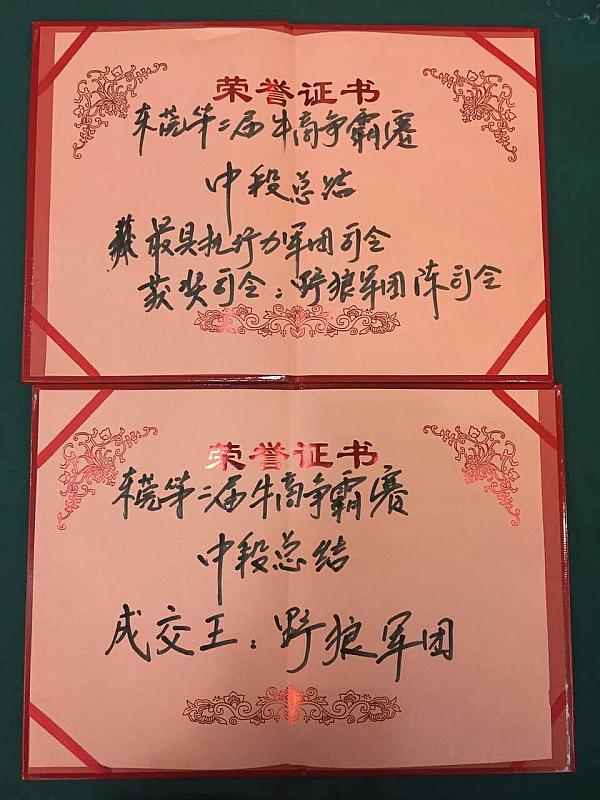 荣誉证书
东莞第二届牛商争霸赛
中段总结
获最具执行力军团司令
获奖司令：野狼军团陈司令
荣誉证书
东莞第二届牛商争霸赛
中段总结
成交王：野狼军团